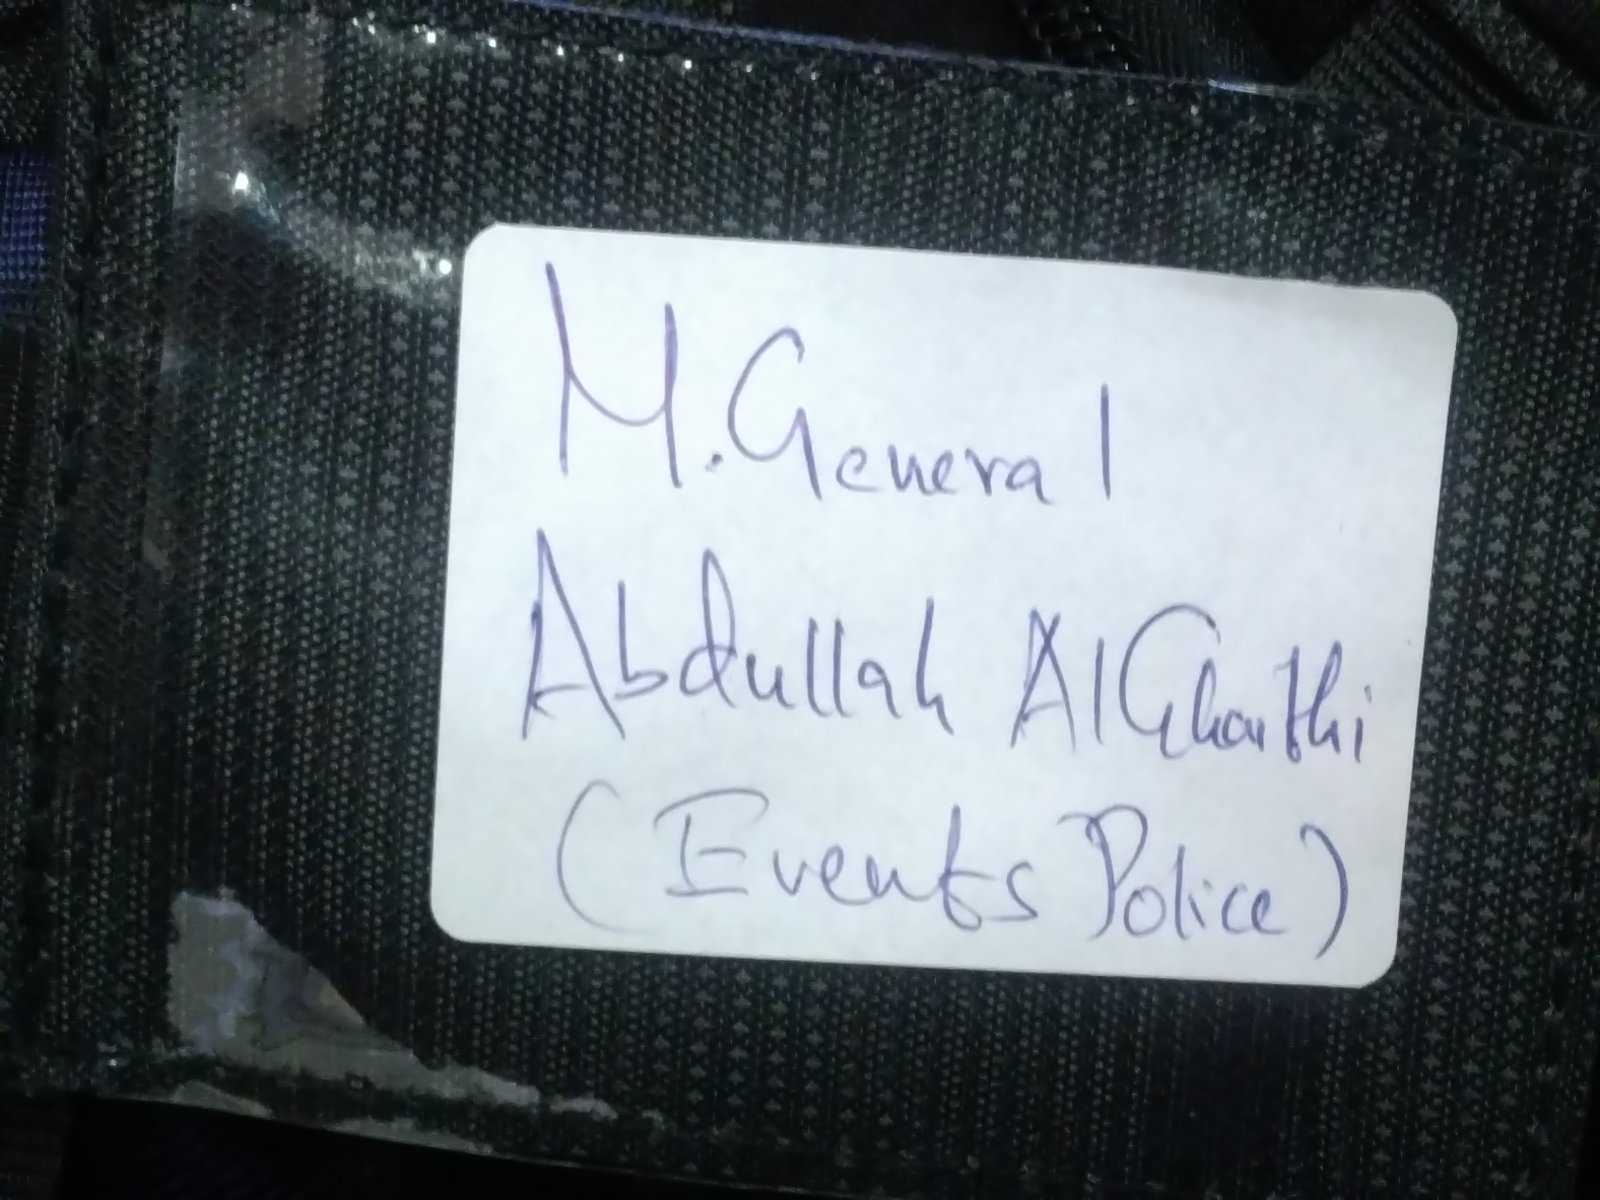 M. General
Abdullah AlGhaithi
(Events Police)